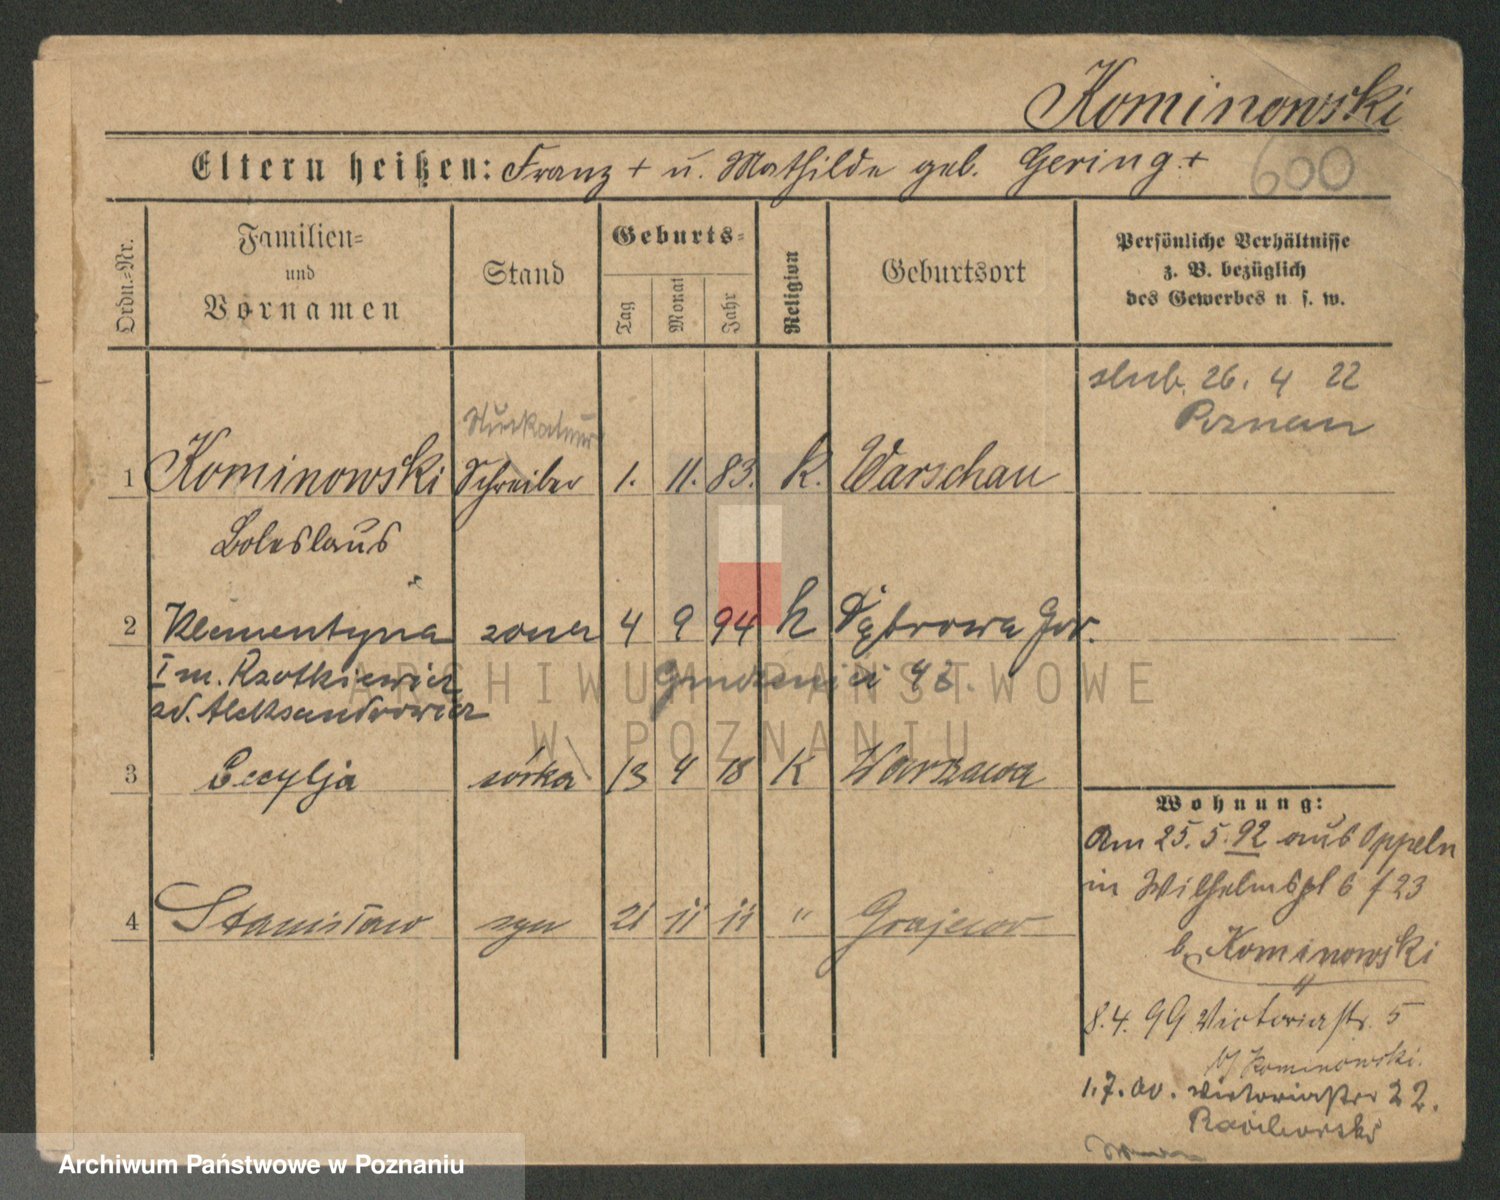 Kominowski
Eltern heißen: Franz + u. Mathilde geb. Gering +
600
Ordn.=Nr.
Familien=
und
Vornamen
Stand
Geburts=
Tag
Monat
Jahr
Religion
Geburtsort
Persönliche Verhältnisse
z. B. bezüglich
des Gewerbes u. s. w.
ślub. 26. 4 22
Poznan
Stuckateur
1 Kominowski Schreiber 1. 11. 83. K. Warschau
Boleslaus
2 Klementyna żona 4 9 94 k Dąbrowa Gór.
I m. Rzotkiewicz
zd. Aleksandrowicz
3 Cecylja córka 13 4 18 K Warszawa
4 Stanisław syn 21 11 11 " Grajewo
Wohnung:
Am 25. 5. 92 aus Oppeln
in Wilhelmspl 6 f 23
b. Kominowski
8. 4. 99 Victoriastr. 5
b/ Kominowski.
1. 7. 00. Victoriastr 22.
Raciborski
ARCHIWUM PAŃSTWOWE
W POZNANIU
Archiwum Państwowe w Poznaniu